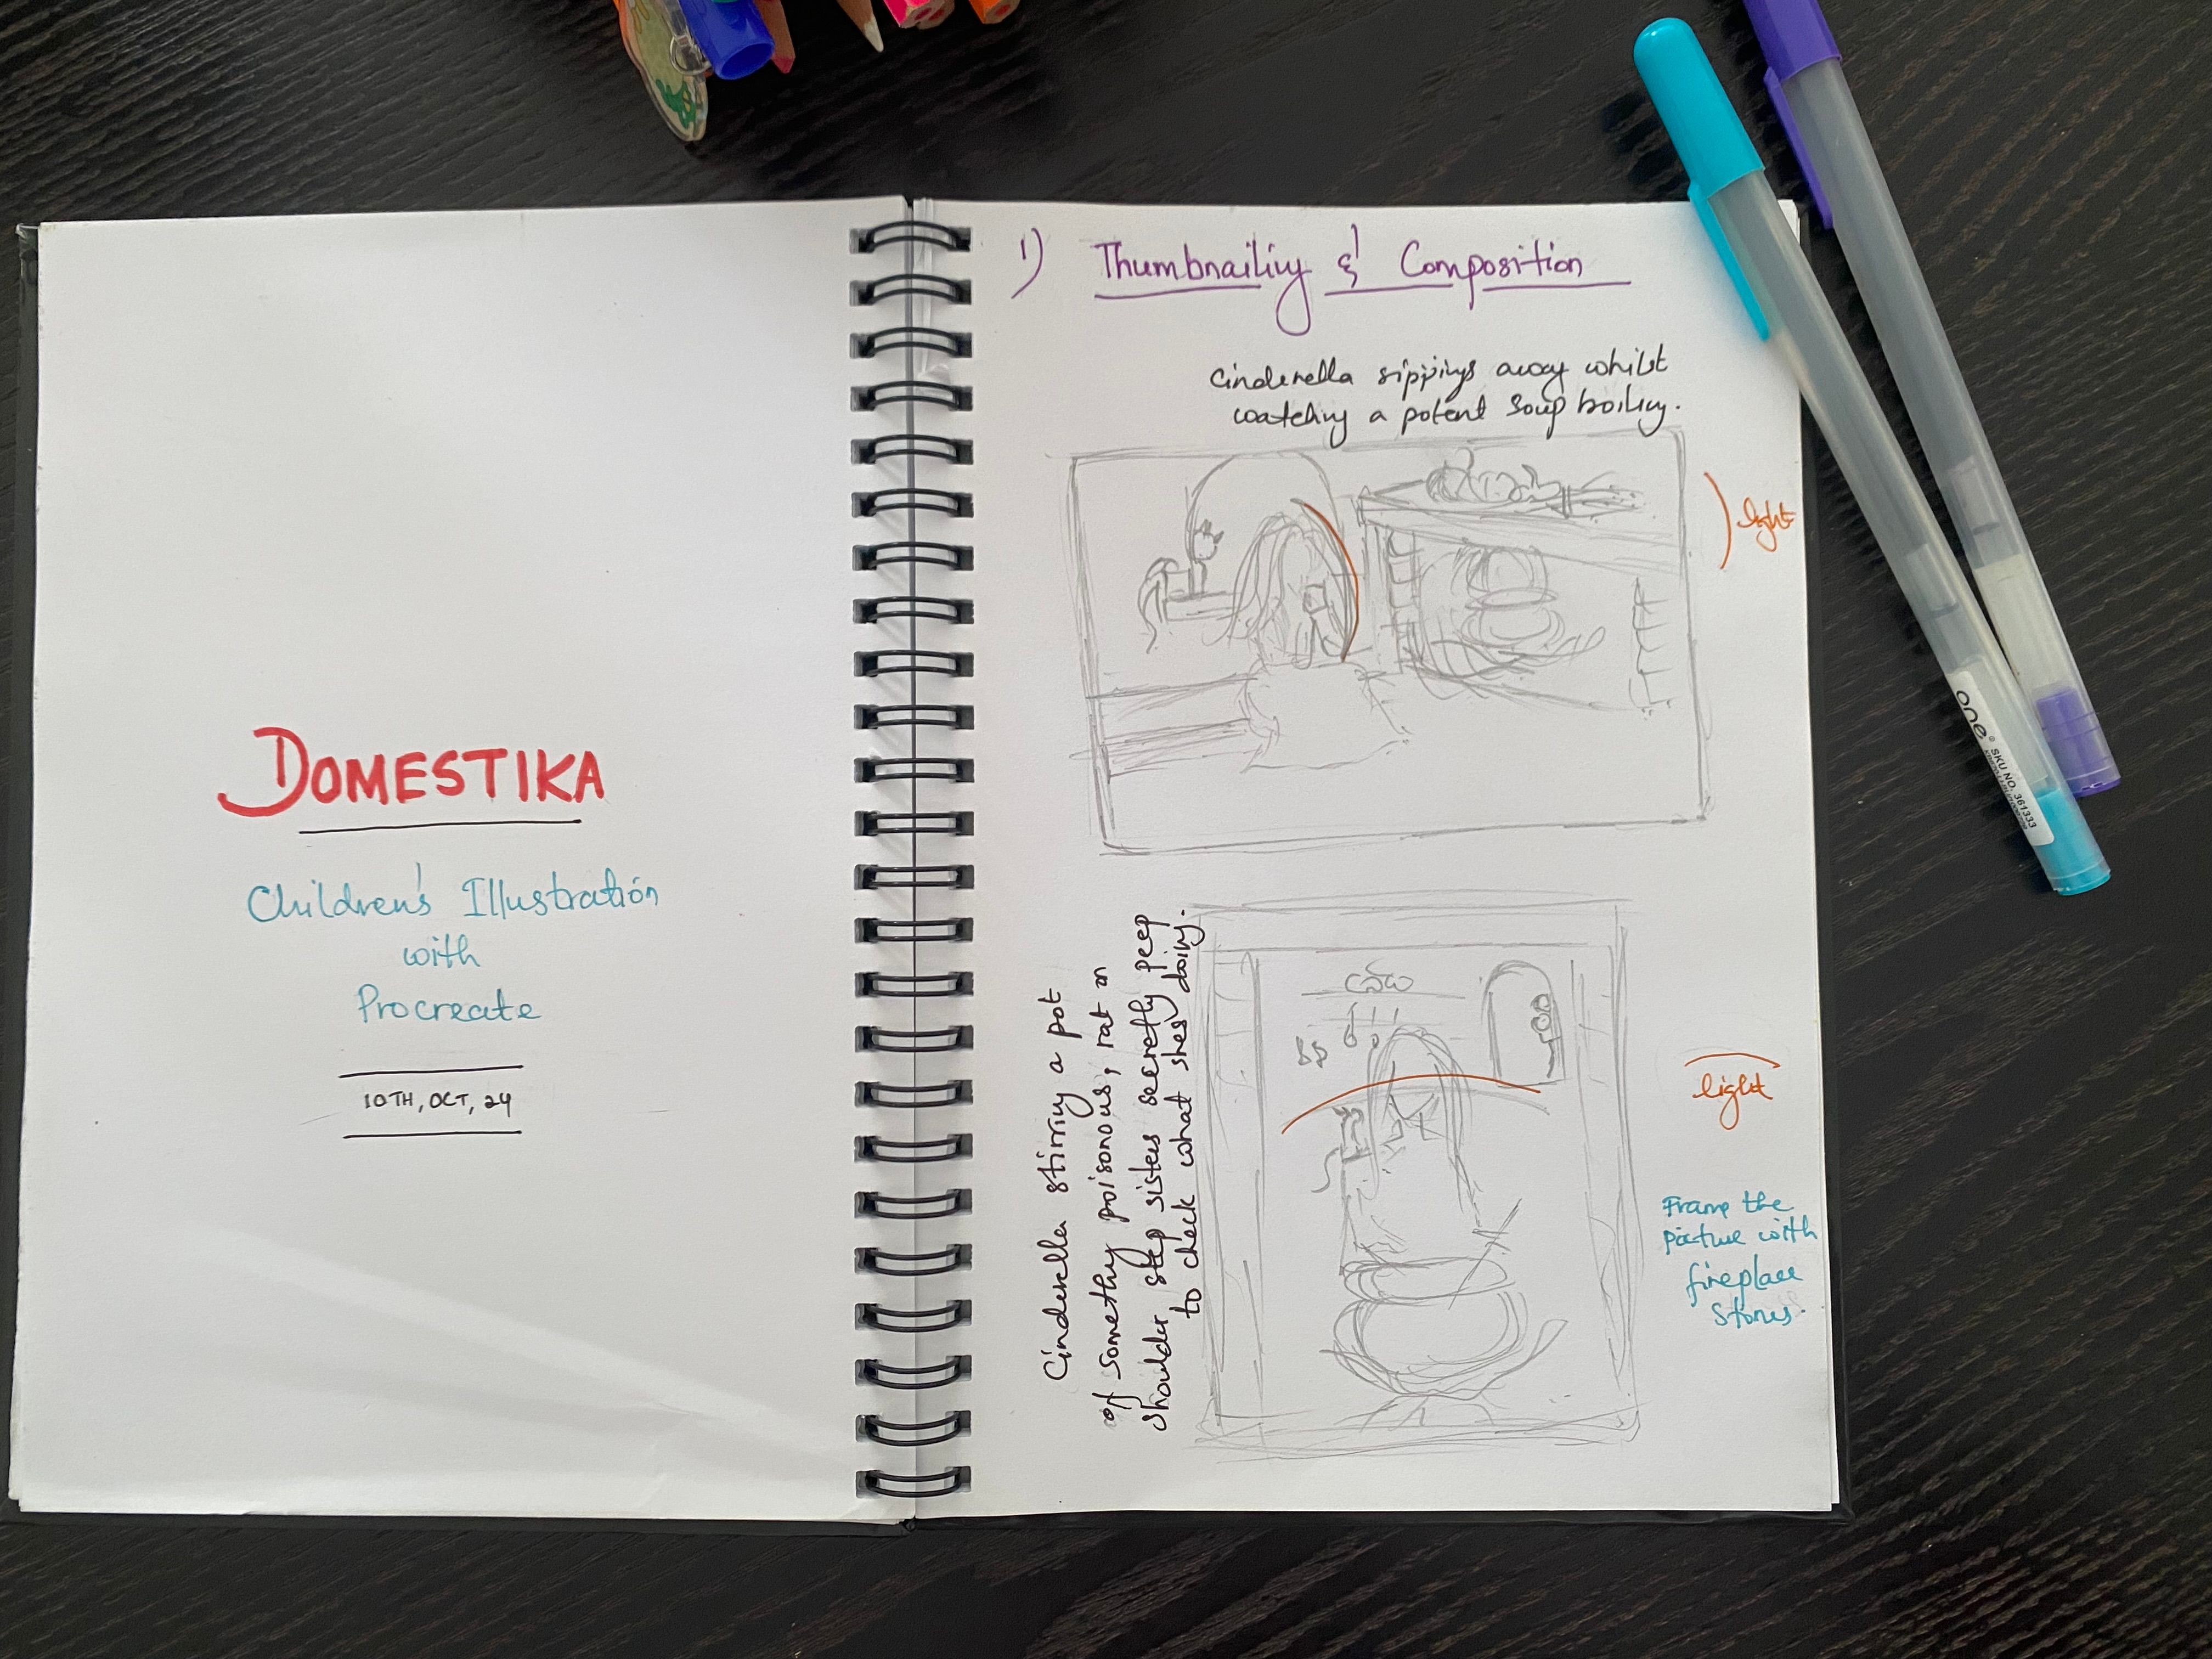 DOMESTIKA
Children's Illustration
with
Procreate
10TH, OCT, 24
1) Thumbnailing & Composition
Cinderella sippings away whilst
watching a potent soup boiling.
light
Cinderella stirring a pot
of something poisonous, rat on
shoulder step sisters secretly peep
to check what shes doing.
light
Frame the
picture with
fireplace
stones.
one®
SKU NO. 361333